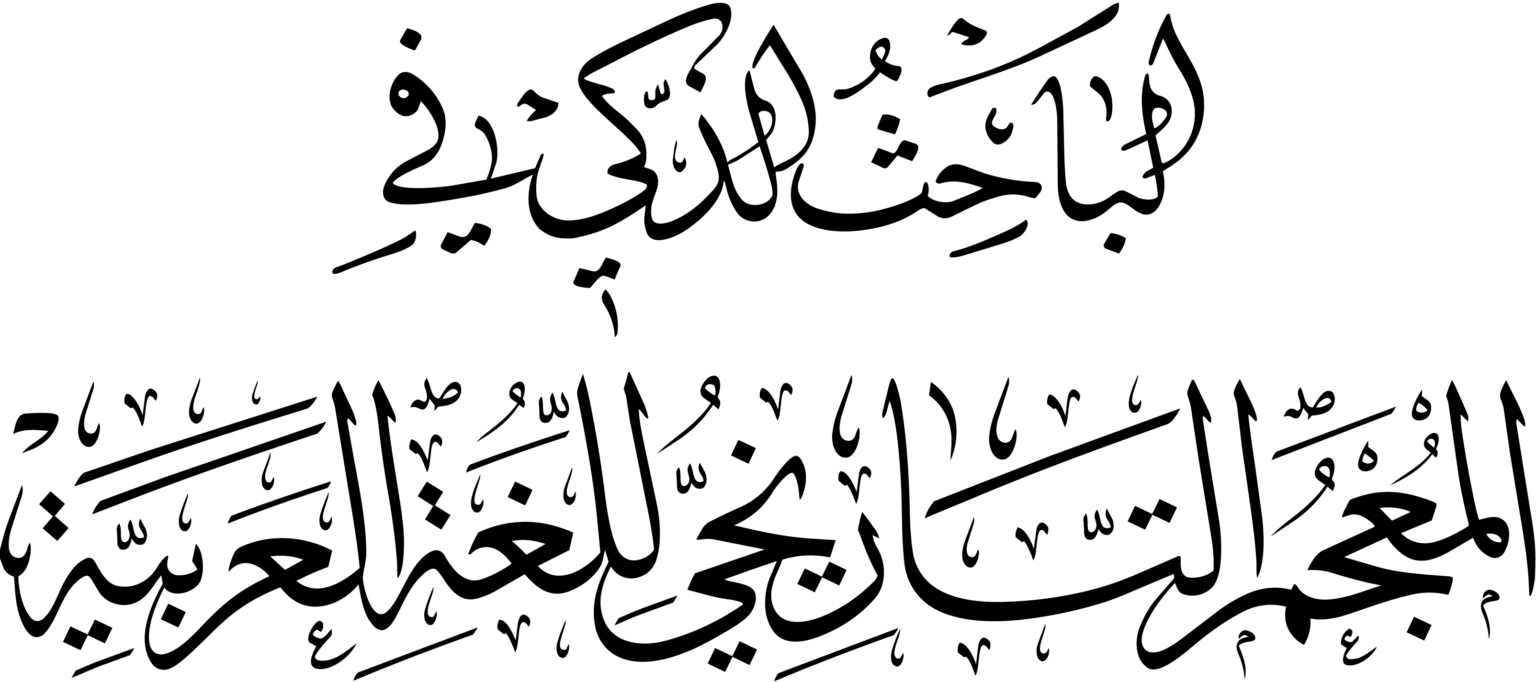 الباحِثُ الذَّكي في
المُعْجَمِ التَّاريخيِّ لِلُّغَةِ العَرَبيَّةِ